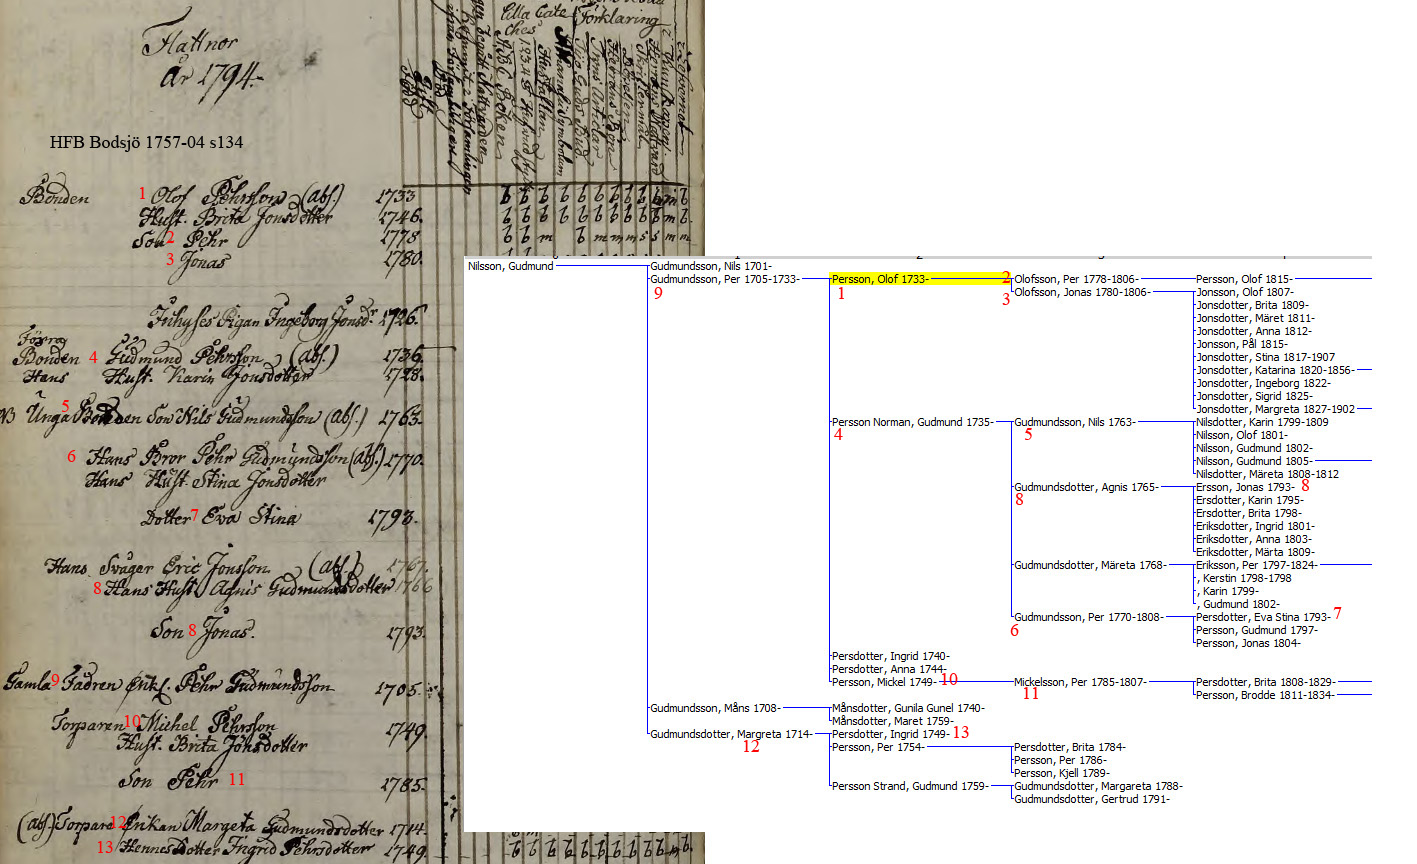 Flattnor
år 1794.
HFB Bodsjö 1757-04 s134
Lilla Cate
ches
Förklaring
Bonden 1 Olof Pehrsson (abs.) 1733
Hust. Brita Jonsdotter 1746.
Son 2 Pehr 1778
3 Jonas 1780.
Inhyses Pigan Ingeborg Jonsdr 1726.
Förra
Bonden 4 Gudmund Pehrsson (abs.) 1736.
Hans Hust. Karin Jonsdotter 1728.
5
Unga Bonden Son Nils Gudmundsson (abs.) 1763.
6 Hans Bror Pehr Gudmundsson (abs.) 1770.
Hans Hust. Stina Jonsdotter
Dotter 7 Eva Stina 1793.
Hans Svåger Eric Jonsson (abs.) 1767.
8 Hans Hust. Agnis Gudmundsdotter 1766
Son 8 Jonas. 1793.
Gamla 9 Fadren Enkl. Pehr Gudmundsson 1705.
Torparen 10 Michel Pehrsson 1749.
Hust. Brita Jonsdotter
Son Pehr 11 1785.
(abs.) Torpare 12 Enkan Margeta Gudmundsdotter 1714.
13 Hennes Dotter Ingrid Pehrsdotter 1749.
Nilsson, Gudmund
Gudmundsson, Nils 1701-
Gudmundsson, Per 1705-1733-
9
Persson, Olof 1733-
1
2 Olofsson, Per 1778-1806-
Persson, Olof 1815-
3 Olofsson, Jonas 1780-1806-
Jonsson, Olof 1807-
Jonsdotter, Brita 1809-
Jonsdotter, Märet 1811-
Jonsdotter, Anna 1812-
Jonsson, Pål 1815-
Jonsdotter, Stina 1817-1907
Jonsdotter, Katarina 1820-1856-
Jonsdotter, Ingeborg 1822-
Jonsdotter, Sigrid 1825-
Jonsdotter, Margreta 1827-1902
Persson Norman, Gudmund 1735-
4
Gudmundsson, Nils 1763-
5
Nilsdotter, Karin 1799-1809
Nilsson, Olof 1801-
Nilsson, Gudmund 1802-
Nilsson, Gudmund 1805-
Nilsdotter, Märeta 1808-1812
Gudmundsdotter, Agnis 1765-
8
Ersson, Jonas 1793- 8
Ersdotter, Karin 1795-
Ersdotter, Brita 1798-
Eriksdotter, Ingrid 1801-
Eriksdotter, Anna 1803-
Eriksdotter, Märta 1809-
Gudmundsdotter, Märeta 1768-
Eriksson, Per 1797-1824-
, Kerstin 1798-1798
, Karin 1799-
, Gudmund 1802-
Gudmundsson, Per 1770-1808-
6
Persdotter, Eva Stina 1793- 7
Persson, Gudmund 1797-
Persson, Jonas 1804-
Persdotter, Ingrid 1740-
Persdotter, Anna 1744-
Persson, Mickel 1749- 10
Mickelsson, Per 1785-1807-
11
Persdotter, Brita 1808-1829-
Persson, Brodde 1811-1834-
Gudmundsson, Måns 1708-
Månsdotter, Gunila Gunel 1740-
Månsdotter, Maret 1759-
Gudmundsdotter, Margreta 1714-
12
Persdotter, Ingrid 1749- 13
Persson, Per 1754-
Persdotter, Brita 1784-
Persson, Per 1786-
Persson, Kjell 1789-
Persson Strand, Gudmund 1759-
Gudmundsdotter, Margareta 1788-
Gudmundsdotter, Gertrud 1791-